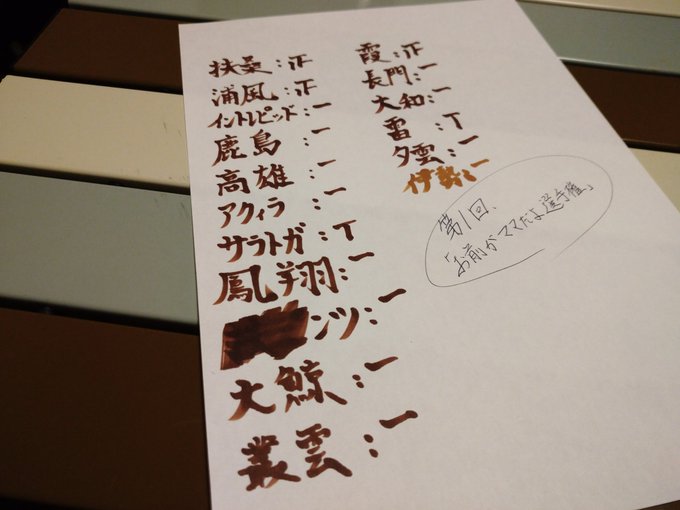 扶桑:正
浦風:正
イントレピッド:一
鹿島:一
高雄:一
アクィラ:一
サラトガ:T
鳳翔:一
ンツ:一
大鯨:一
叢雲:一
霞:正
長門:一
大和:一
雷:T
夕雲:一
伊勢:一
第1回、
「お前がママだよ選手権」